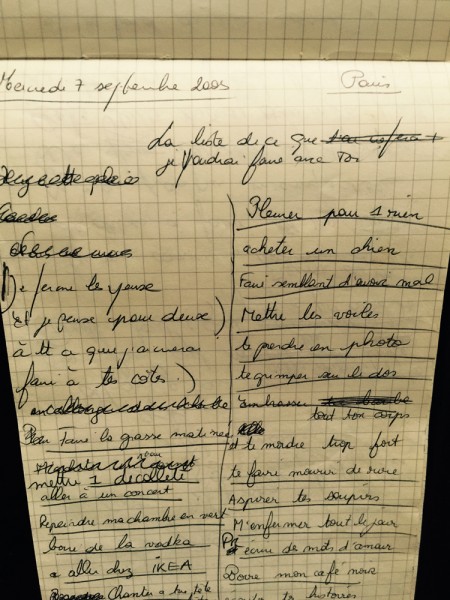 Mercredi 7 septembre 2005
Paris
La liste de ce que
je voudrai faire avec toi
Je ferme les yeux
Et je pense pour deux
à tt ce que j'aimerai
faire à tes côtés
Faire la grasse matinée
mettre 1 beau décolleté
aller à un concert
Repeindre ma chambre en vert
boire de la vodka
aller chez IKEA
Pleurer pour 1 rien
acheter un chien
Faire semblant d'avoir mal
Mettre les voiles
te prendre en photo
te grimper sur le dos
Embrasser
tout ton corps
et te mordre trop fort
te faire mourir de rire
Aspirer tes soupirs
M'enfermer tout le jour
écrire des mots d'amour
Boire mon café noir